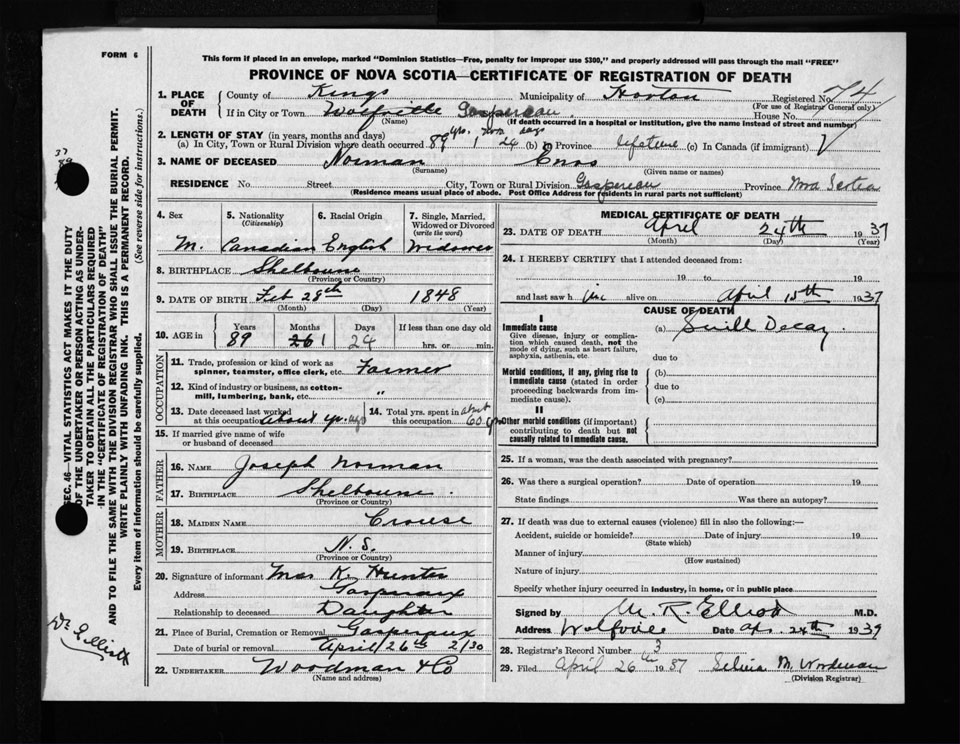 FORM 6
This form if placed in an envelope, marked "Dominion Statistics—Free, penalty for improper use $300," and properly addressed will pass through the mail "FREE"
PROVINCE OF NOVA SCOTIA—CERTIFICATE OF REGISTRATION OF DEATH
1. PLACE OF DEATH County of Kings Municipality of Horton Registered No. 74
(For use of Registrar General only)
If in City or Town Wolfville Gaspereau House No.
(Name) (If death occurred in a hospital or institution, give the name instead of street and number)
2. LENGTH OF STAY (in years, months and days) yrs. mos days
(a) In City, Town or Rural Division where death occurred 89 1 24 (b) In Province lifetime (c) In Canada (if immigrant)
3. NAME OF DECEASED Norman Enos
(Surname) (Given name or names)
RESIDENCE No. Street City, Town or Rural Division Gaspereau Province Nova Scotia
(Residence means usual place of abode. Post Office Address for residents in rural parts not sufficient)
4. Sex 5. Nationality (Citizenship) 6. Racial Origin 7. Single, Married, Widowed or Divorced (write the word)
M. Canadian English Widower
8. BIRTHPLACE Shelbourne
(Province or Country)
9. DATE OF BIRTH Feb 28th 1848
(Month) (Day) (Year)
10. AGE in Years Months Days If less than one day old
89 26 1 24 hrs. or min.
OCCUPATION
11. Trade, profession or kind of work as spinner, teamster, office clerk, etc. Farmer
12. Kind of industry or business, as cotton-mill, lumbering, bank, etc. "
13. Date deceased last worked at this occupation about yr. ago 14. Total yrs. spent in this occupation about 60 yrs
15. If married give name of wife or husband of deceased
FATHER
16. NAME Joseph Norman
17. BIRTHPLACE Shelbourne.
(Province or Country)
MOTHER
18. MAIDEN NAME Crouse
19. BIRTHPLACE N. S.
(Province or Country)
20. Signature of informant Mrs K. Hunter
Address Gaspereaux
Relationship to deceased Daughter
21. Place of Burial, Cremation or Removal Gaspereaux
Date of burial or removal April 26th 2/30
22. UNDERTAKER Woodman & Co
(Name and address)
MEDICAL CERTIFICATE OF DEATH
23. DATE OF DEATH April 24th 1937
(Month) (Day) (Year)
24. I HEREBY CERTIFY that I attended deceased from:
19 to 19
and last saw him alive on April 15th 1937
CAUSE OF DEATH
I
Immediate cause (a) Senile Decay.
Give disease, injury or complication which caused death, not the mode of dying, such as heart failure, asphyxia, asthenia, etc.
due to
Morbid conditions, if any, giving rise to immediate cause (stated in order proceeding backwards from immediate cause).
(b)
due to
(c)
II
Other morbid conditions (if important) contributing to death but not causally related to immediate cause.
25. If a woman, was the death associated with pregnancy?
26. Was there a surgical operation? Date of operation 19
State findings Was there an autopsy?
27. If death was due to external causes (violence) fill in also the following:—
Accident, suicide or homicide? Date of injury 19
(State which)
Manner of injury
(How sustained)
Nature of injury
Specify whether injury occurred in industry, in home, or in public place
Signed by M. R. Elliott M.D.
Address Wolfville Date Ap. 24th 1937
28. Registrar's Record Number 3
29. Filed April 26th 1937 M. Woodman
(Division Registrar)
SEC. 46—VITAL STATISTICS ACT MAKES IT THE DUTY
OF THE UNDERTAKER OR PERSON ACTING AS UNDER-
TAKER TO OBTAIN ALL THE PARTICULARS REQUIRED
IN THE "CERTIFICATE OF REGISTRATION OF DEATH"
AND TO FILE THE SAME WITH THE DIVISION REGISTRAR WHO SHALL ISSUE THE BURIAL PERMIT.
WRITE PLAINLY WITH UNFADING INK. THIS IS A PERMANENT RECORD.
Every item of information should be carefully supplied. (See reverse side for instructions.)
Dr Elliott